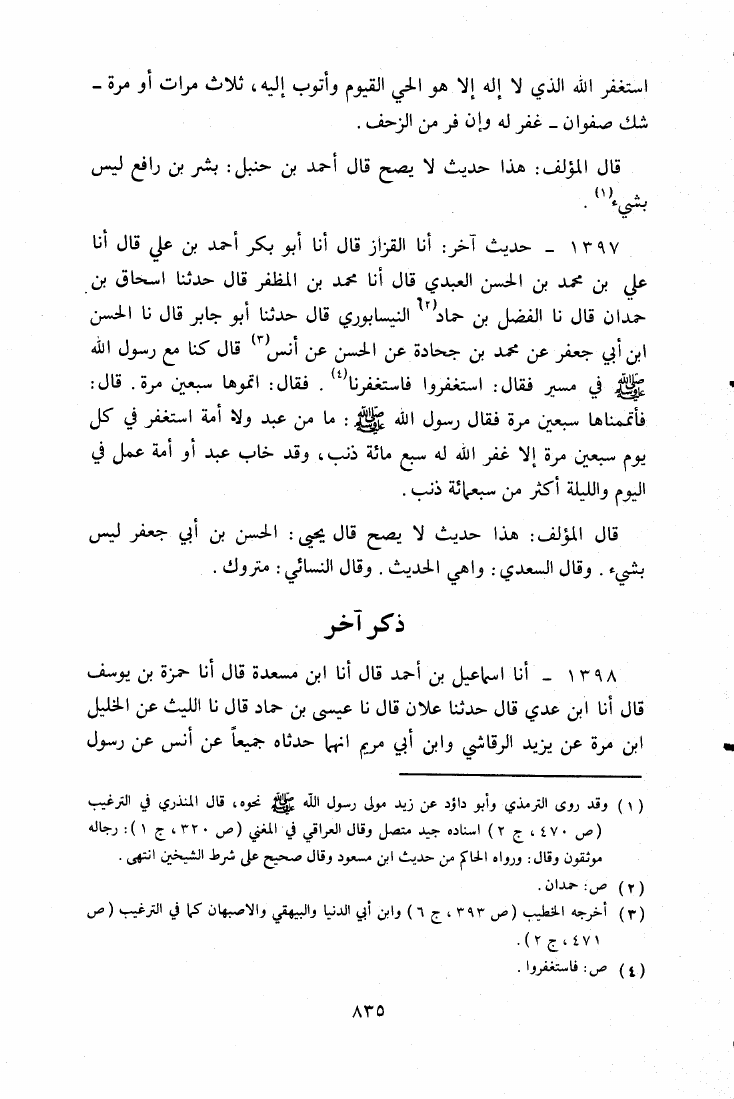 استغفر الله الذي لا إله إلا هو الحي القيوم وأتوب إليه، ثلاث مرات أو مرة ـ
شك صفوان ـ غفر له وإن فر من الزحف .
قال المؤلف: هذا حديث لا يصح قال أحمد بن حنبل: بشر بن رافع ليس
بشيء(١) .
١٣٩٧ ـ حديث آخر: أنا القزاز قال أنا أبو بكر أحمد بن علي قال أنا
علي بن محمد بن الحسن العبدي قال أنا محمد بن المظفر قال حدثنا اسحاق بن
حمدان قال نا الفضل بن حماد(٢) النيسابوري قال حدثنا أبو جابر قال نا الحسن
ابن أبي جعفر عن محمد بن جحادة عن الحسن عن أنس(٣) قال كنا مع رسول الله
ﷺ في مسير فقال: استغفروا فاستغفرنا(٤) . فقال: اتموها سبعين مرة . قال:
فأتممناها سبعين مرة فقال رسول الله ﷺ: ما من عبد ولا أمة استغفر في كل
يوم سبعين مرة إلا غفر الله له سبع مائة ذنب، وقد خاب عبد أو أمة عمل في
اليوم والليلة أكثر من سبعمائة ذنب .
قال المؤلف: هذا حديث لا يصح قال يحيى: الحسن بن أبي جعفر ليس
بشيء . وقال السعدي: واهي الحديث . وقال النسائي: متروك .
ذكر آخر
١٣٩٨ ـ أنا اسماعيل بن أحمد قال أنا ابن مسعدة قال أنا حمزة بن يوسف
قال أنا ابن عدي قال حدثنا علان قال نا عيسى بن حماد قال نا الليث عن الخليل
ابن مرة عن يزيد الرقاشي وابن أبي مريم انهما حدثاه جميعاً عن أنس عن رسول
(١) وقد روى الترمذي وأبو داؤد عن زيد مولى رسول الله ﷺ نحوه، قال المنذري في الترغيب
(ص ٤٧٠، ج ٢) اسناده جيد متصل وقال العراقي في المغني (ص ٣٢٠، ج ١): رجاله
موثقون وقال: ورواه الحاكم من حديث ابن مسعود وقال صحيح على شرط الشيخين انتهى .
(٢) ص: حمدان .
(٣) أخرجه الخطيب (ص ٣٩٣، ج ٦) وابن أبي الدنيا والبيهقي والاصبهان كما في الترغيب (ص
٤٧١، ج ٢) .
(٤) ص: فاستغفروا .
٨٣٥